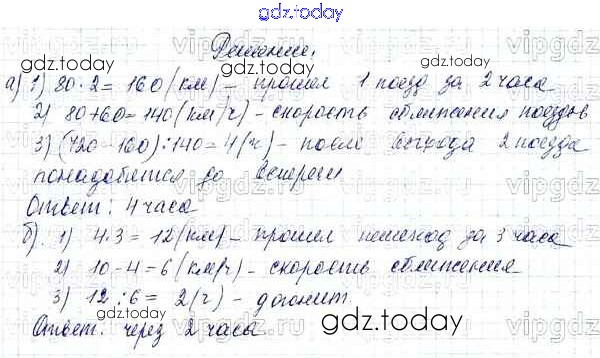 gdz.today
Решение.
а) 1) 80·2=160(км) – прошел 1 поезд за 2 часа
2) 80+60=140(км/ч) – скорость сближения поездов
3) (720-160):140=4(ч) – после выхода 2 поезда
понадобится до встречи
Ответ: 4 часа
б). 1) 4·3=12(км) – прошел пешеход за 3 часа
2) 10-4=6(км/ч) – скорость сближения
3) 12:6=2(ч) – догонит.
Ответ: через 2 часа
gdz.today
gdz.today